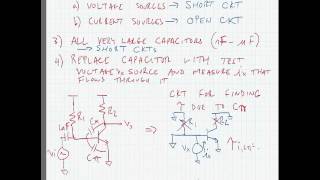 a) VOLTAGE SOURCES → SHORT CKT
b) CURRENT SOURCES → OPEN CKT
3) ALL VERY LARGE CAPACITORS (nF - μF)
→ SHORT CKTS
4) REPLACE CAPACITOR WITH TEST
VOLTAGE SOURCE AND MEASURE ix THAT
FLOWS THROUGH IT
CKT FOR FINDING
DUE TO Cπ
R1
R2
Cμ
Vo
Cπ
Vi
⇒
R1
R2
Vx
ix